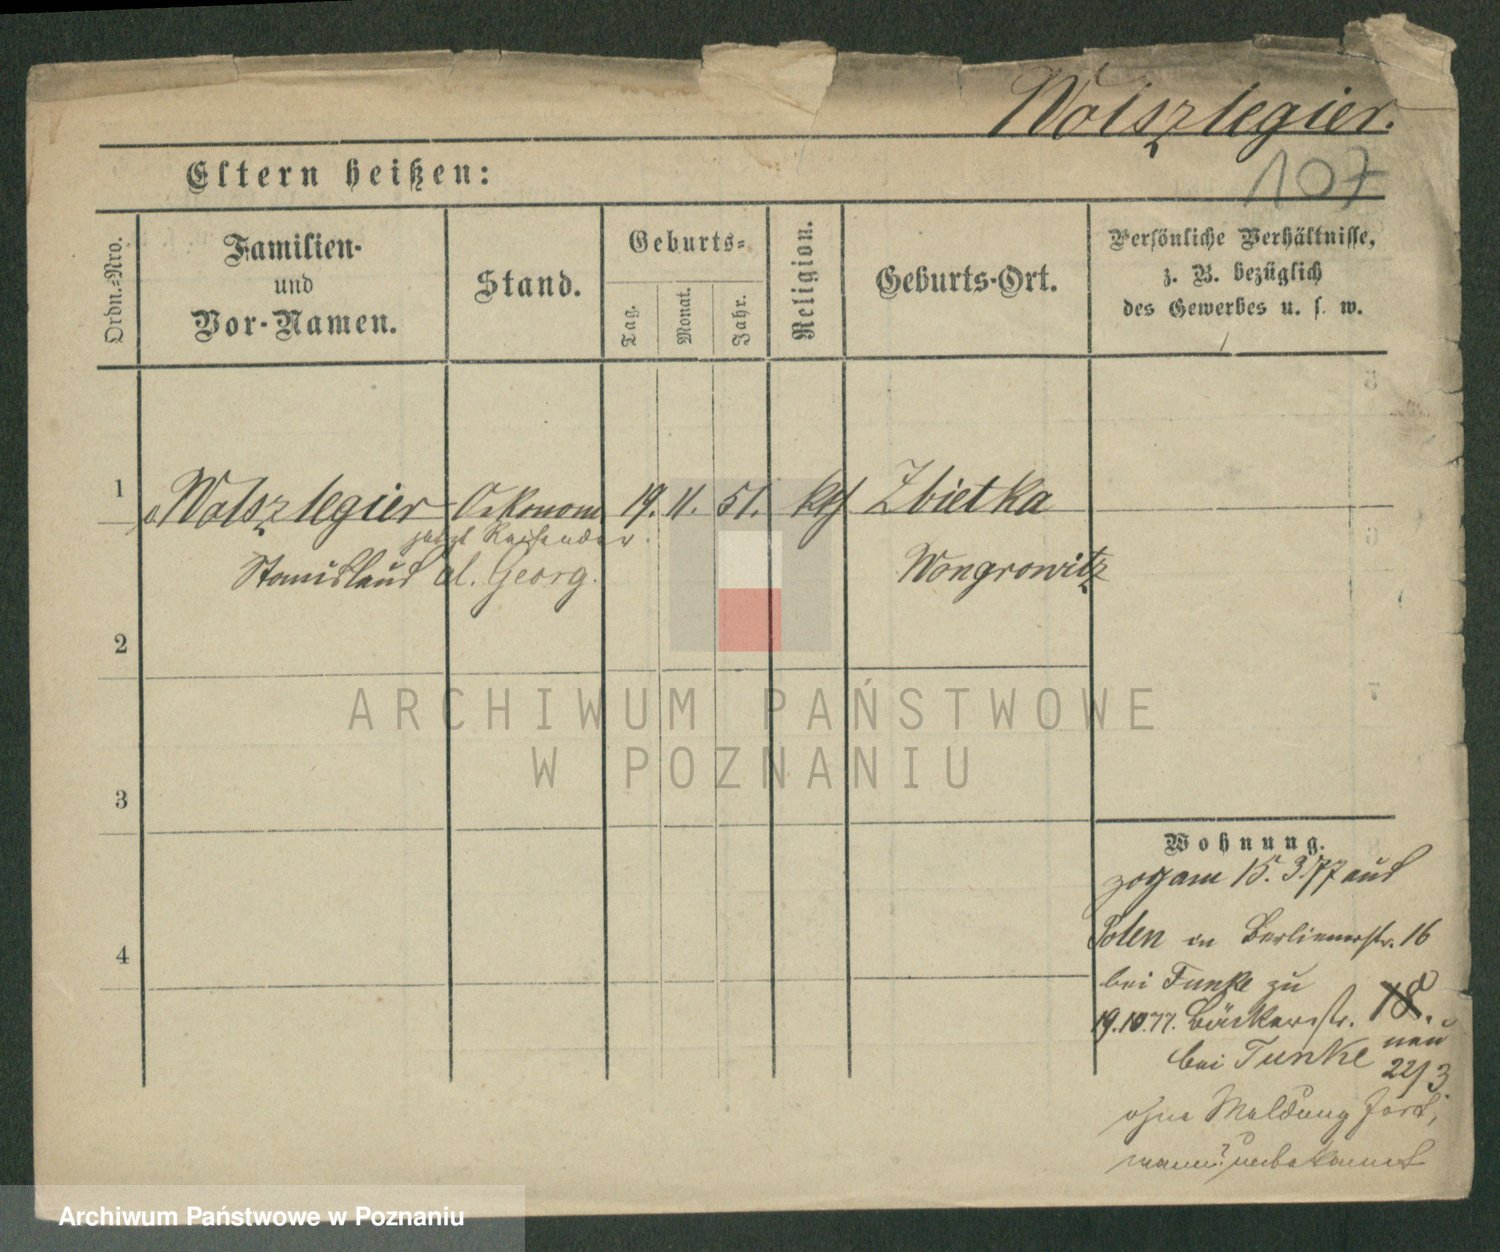 Wolszlegier.
107
Eltern heißen:
Ordn.-Nro.
Familien-
und
Vor-Namen.
Stand.
Geburts-
Tag.
Monat.
Jahr.
Religion.
Geburts-Ort.
Persönliche Verhältnisse,
z. B. bezüglich
des Gewerbes u. s. w.
1 Wolszlegier Oekonom 19. 11. 51. kth Zbietka
jetzt Reisender.
Stanislaus al. Georg. Wongrowitz
2
3
4
ARCHIWUM PAŃSTWOWE
W POZNANIU
Wohnung.
zog am 15. 3. 77 aus
Polen in Berlinerstr. 16
bei Funke zu
19.10.77. Bäckerstr. 18.
neu
bei Funke 22/3
ohne Meldung fort,
wann? unbekannt
Archiwum Państwowe w Poznaniu